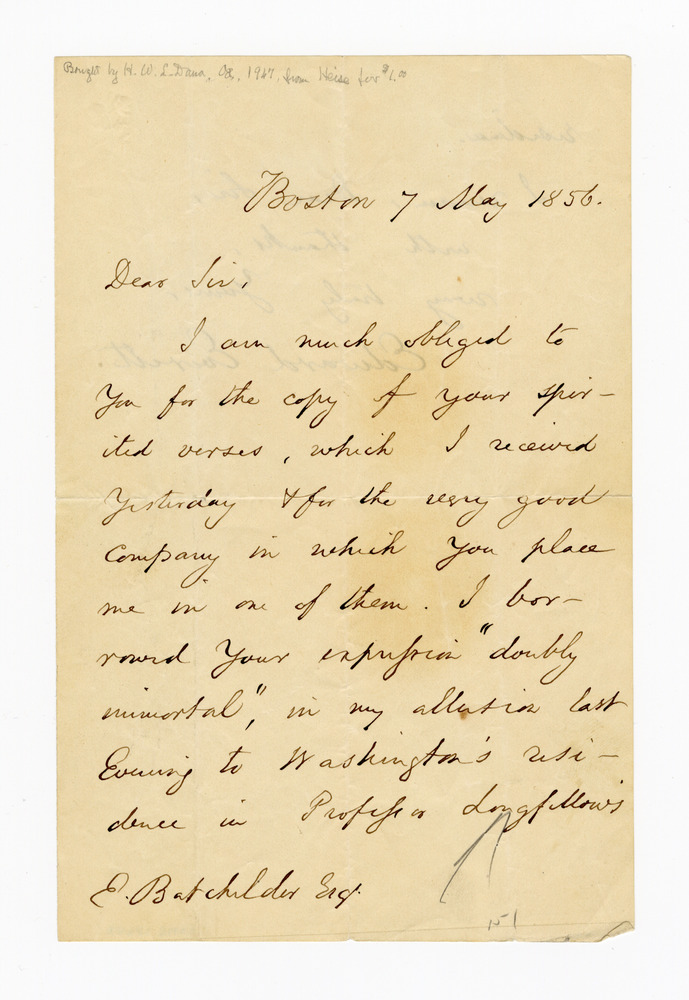 Bought by H. W. L. Dana, Oct, 1947, from Heise for $1.00
Boston 7 May 1856.
Dear Sir,
I am much obliged to
you for the copy of your spir-
ited verses, which I received
yesterday & for the very good
company in which you place
me in one of them. I bor-
rowed your expression "doubly
immortal", in my allusion last
Evening to Washington's resi-
dence in Professor Longfellow's
E. Batchilder Esq.
151